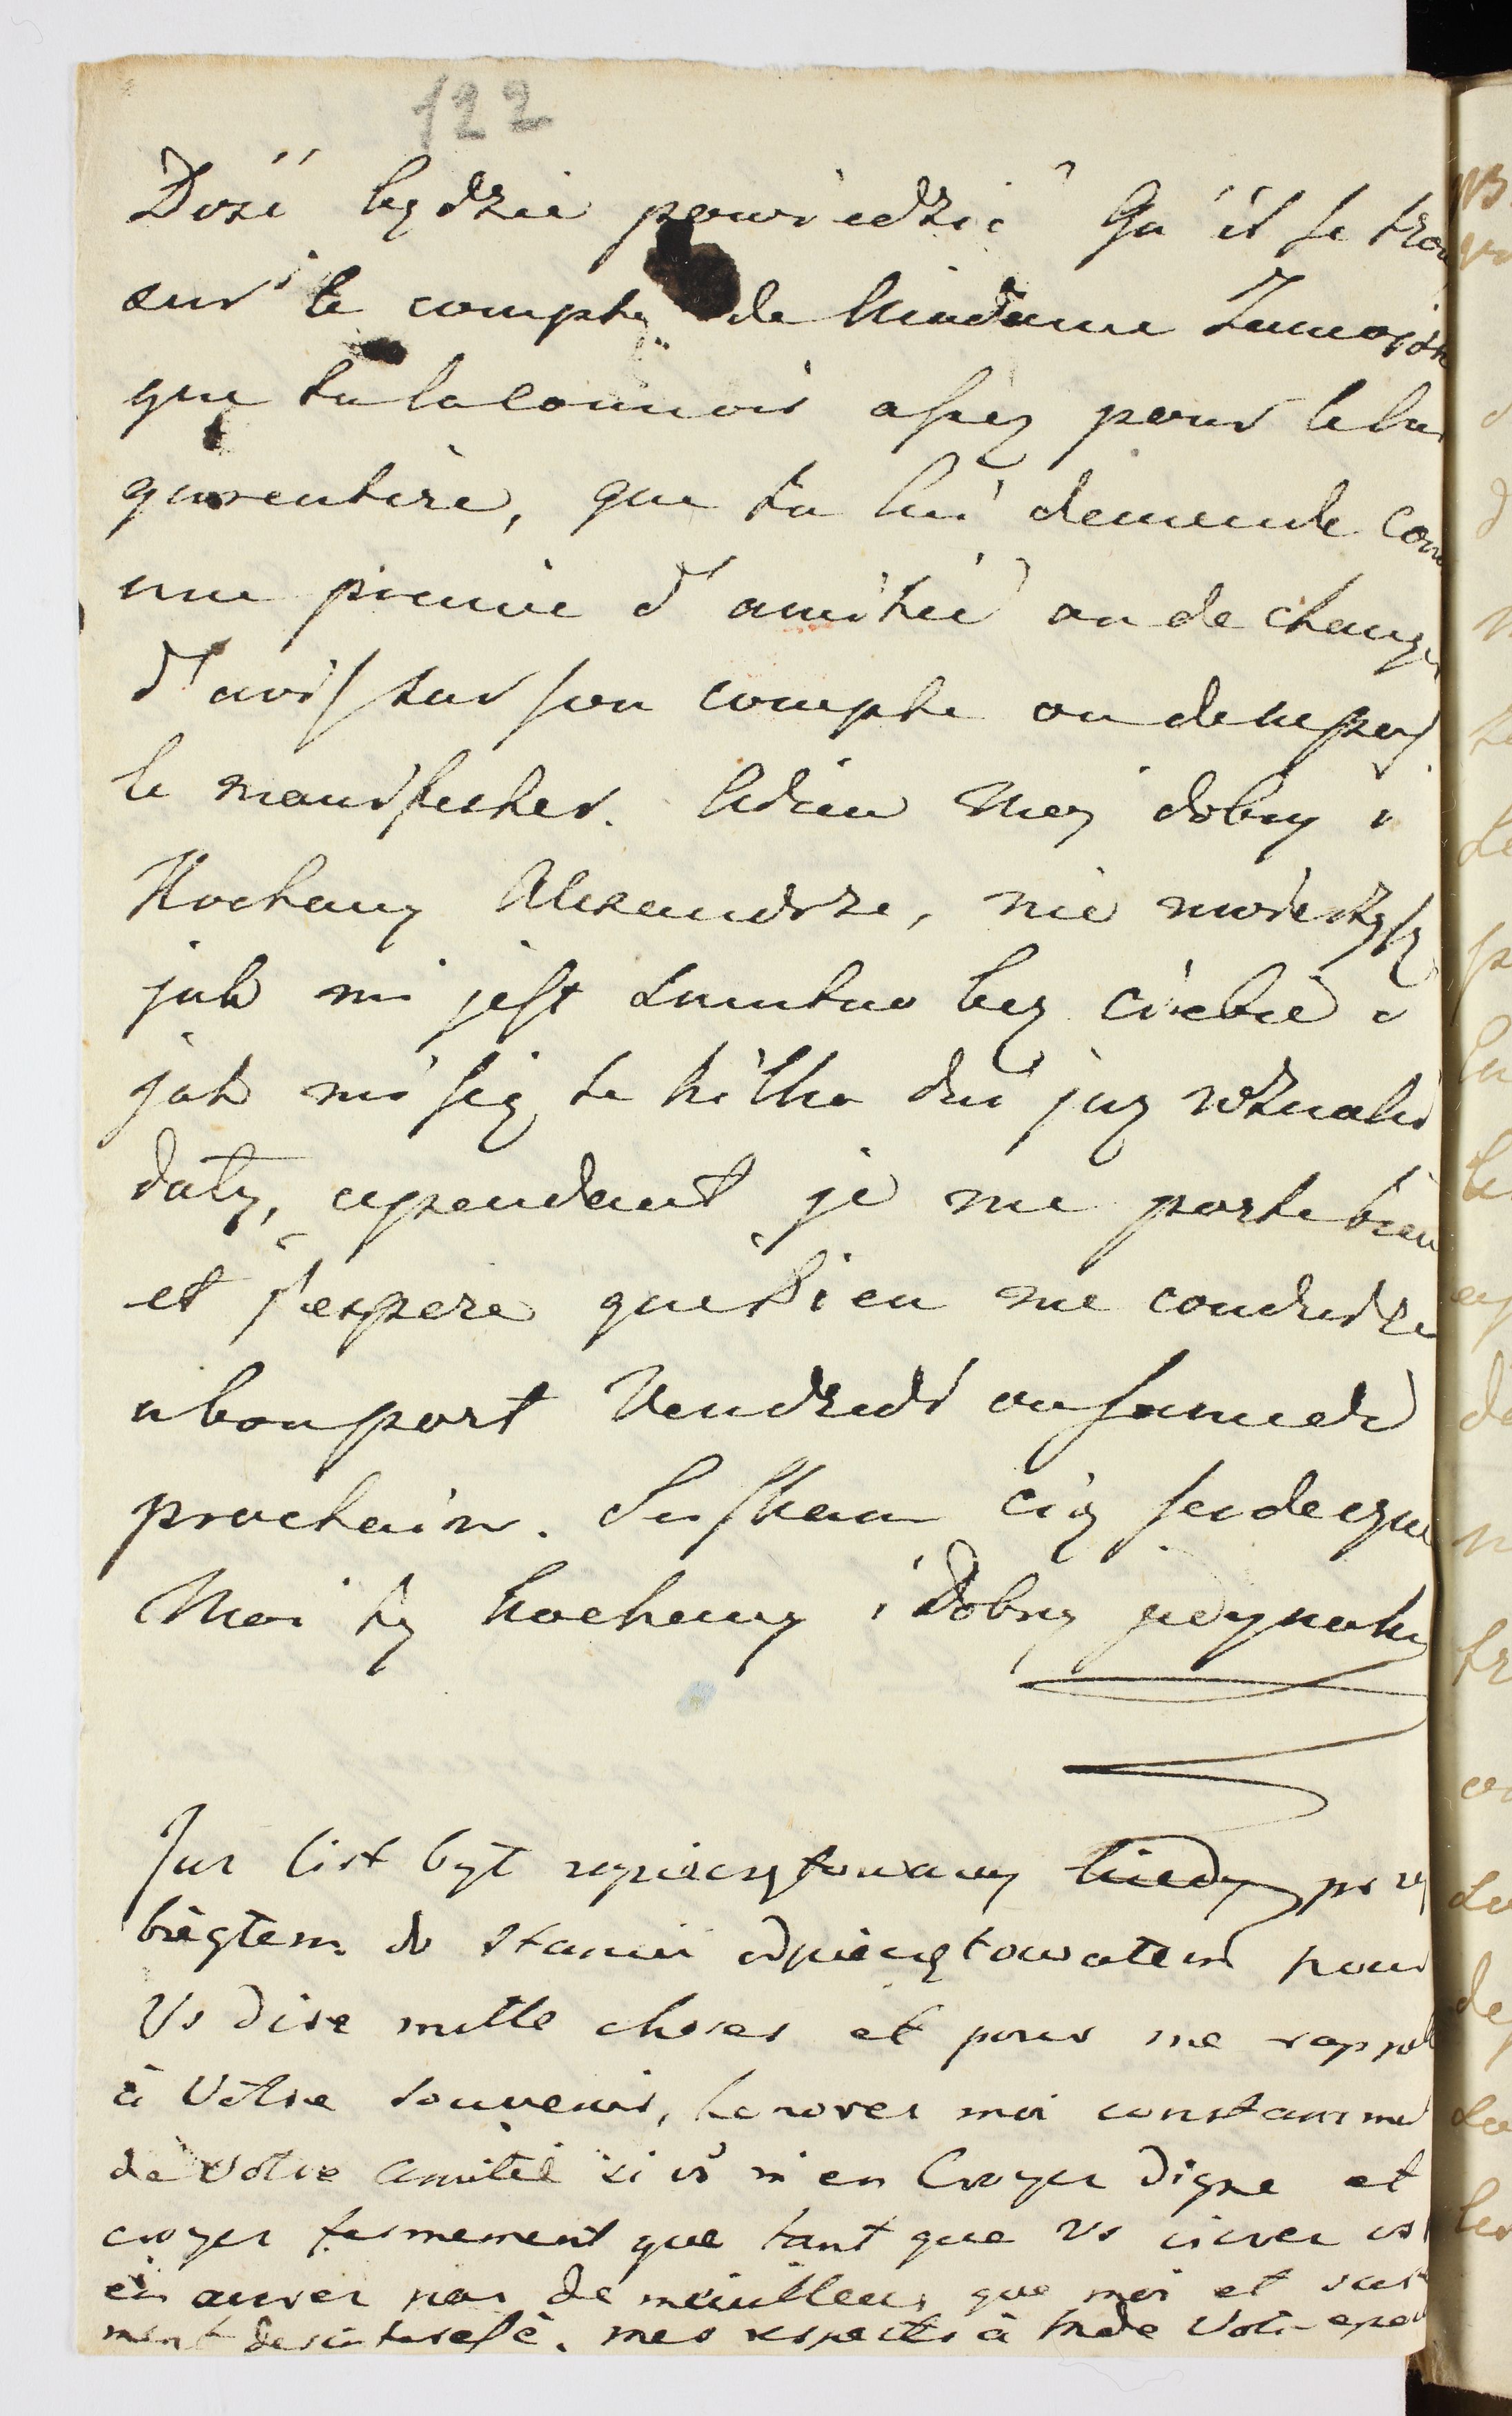 122
Dosić będzie powiedzić Qu'il se trom
sur le compte de Madame Zamoiska
que tu la connois assez pour le lui
garentire, que tu lui demende com
une preuve d'amitié ou de change
d'avis sur son compte ou de ne pas
le manifester. Adieu moy dobry i
Kochany Alexandrze, nie możesz
jak mi jest smutno bez ciebie i
jak mi się te kilka dni już wznaki
dały, cependant je me porte bien
et j'espere que Dieu me condui
a bon port Vendredi ou samedi
prochain. Sciskam cię serdeczn
Moi ty kochany i Dobry jedynaku
Jur list był zapieczętowany kiedy przy
biegłem do Stanci odpieczętowałem pour
Vs dire mille choses et pour me rappel
à Vôtre souvenir, honorez moi constamme
de Votre amitié si vs m'en Croyez digne et
croyez fermement que tant que vs vivrez vs
en aurez pas de meilleur que moi et
ment desinteressé. mes respects à Mde Votre epou